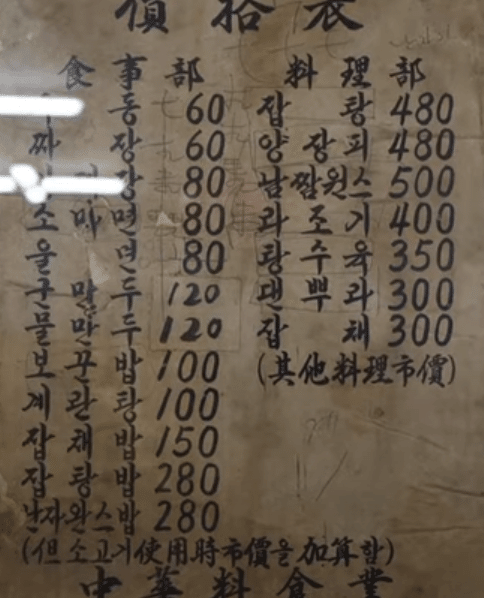 價 拾 表
食 事 部
동 60
짜 장 60
장 80
소 마 면 80
울 면 80
군 만 두 120
물 만 두 120
보 꾼 밥 100
계 란 탕 100
잡 채 밥 150
잡 탕 밥 280
난자완스밥 280
(但 소고기使用時市價을 加算함)
料 理 部
잡 탕 480
양 장 피 480
500
라 조 기 400
탕 수 육 350
덴 뿌 라 300
잡 채 300
(其他料理市價)
中 華 料 食 業